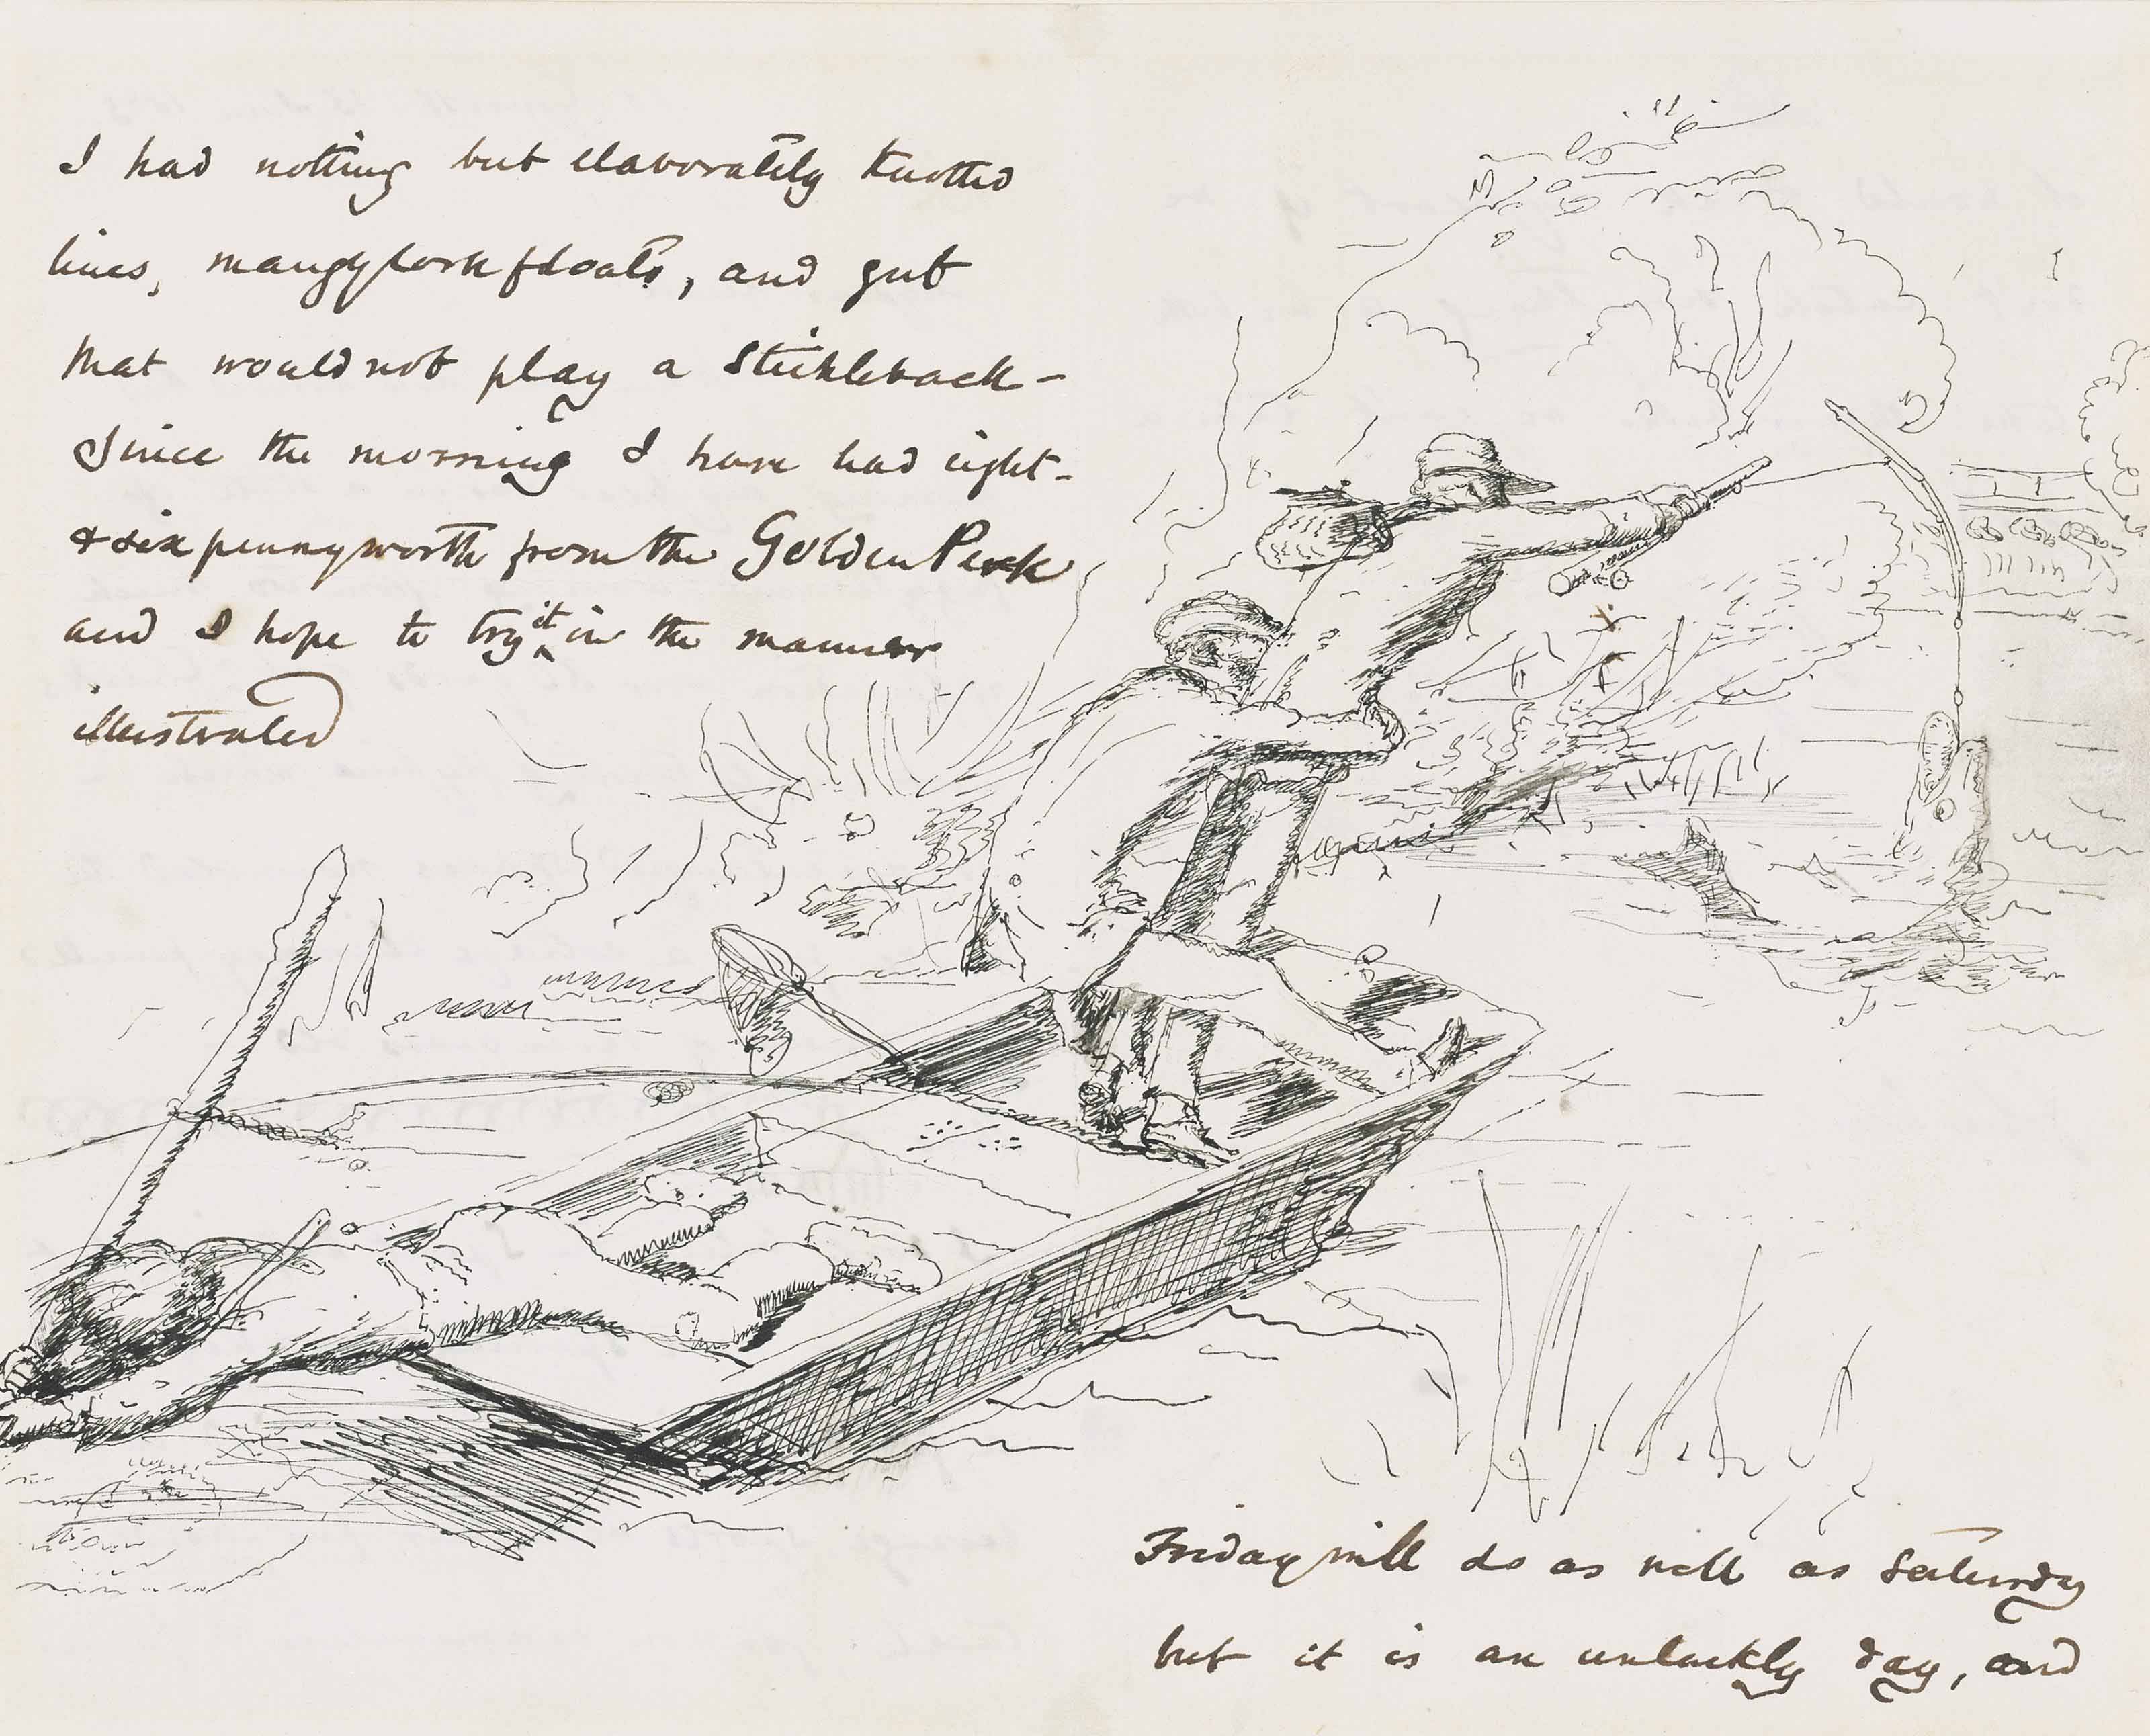 I had nothing but elaborately knotted
lines, mangy cork floats, and gut
that would not play a Stickleback -
Since the morning I have had eight -
& six pennyworth from the Golden Perch
and I hope to try it in the manner
illustrated
Friday will do as well as Saturday
but it is an unluckly day, and